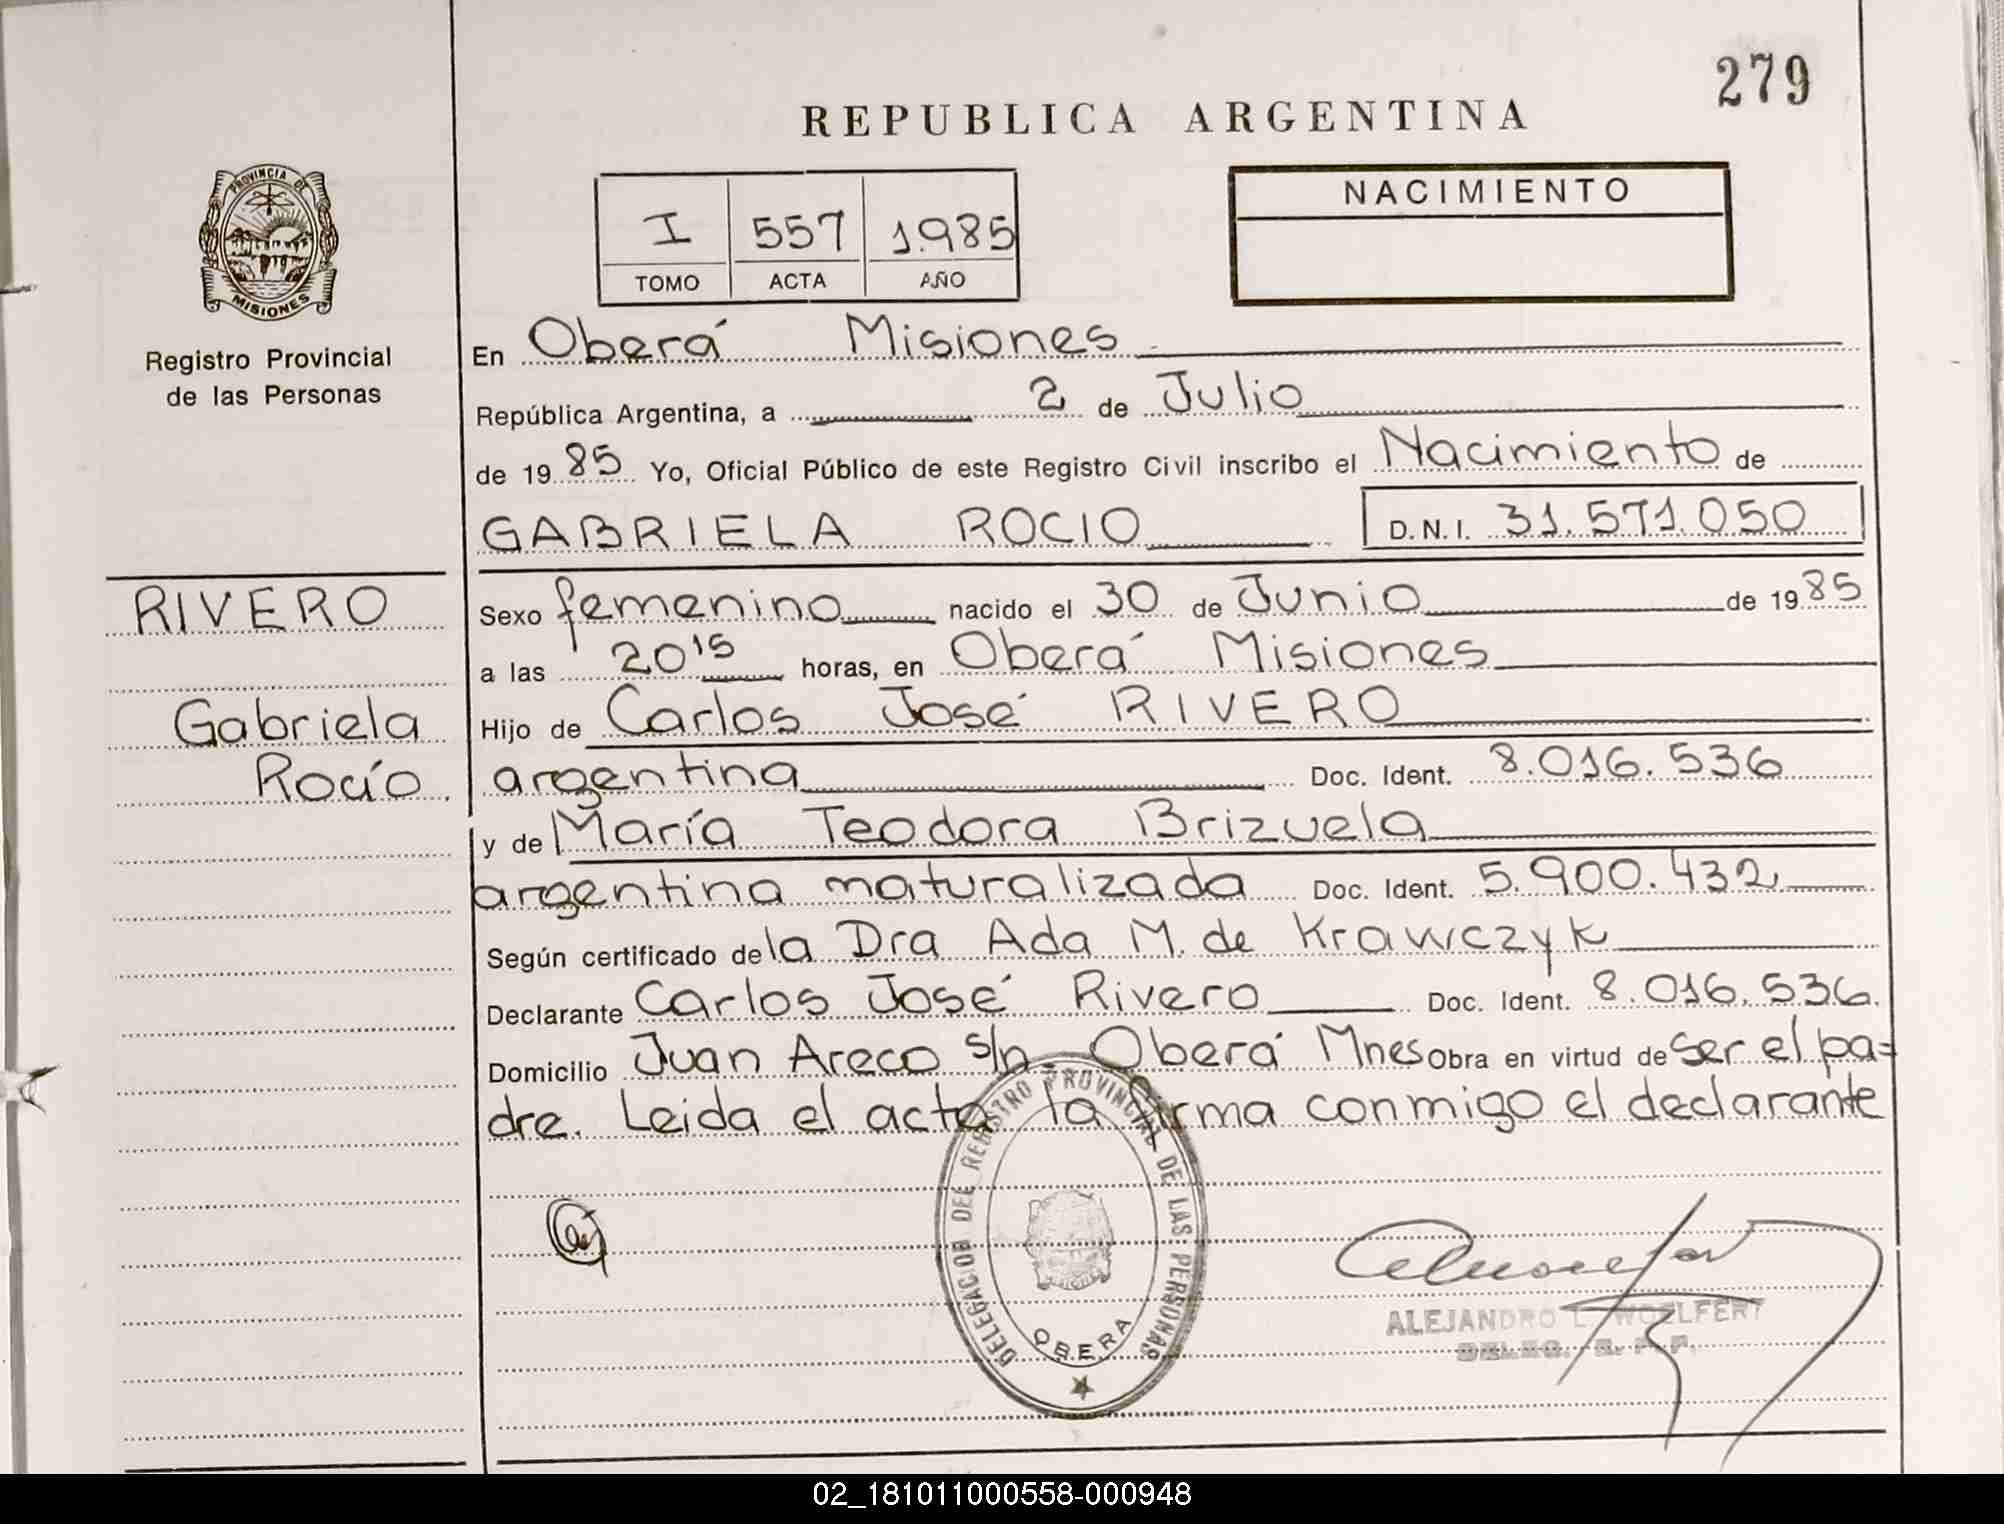 279
REPUBLICA ARGENTINA
PROVINCIA DE
MISIONES
Registro Provincial
de las Personas
I 557 1.985
TOMO ACTA AÑO
NACIMIENTO
En Oberá Misiones
República Argentina, a 2 de Julio
de 1985 Yo, Oficial Público de este Registro Civil inscribo el Nacimiento de
GABRIELA ROCIO D.N.I. 31.571.050
RIVERO
Gabriela
Rocío
Sexo femenino nacido el 30 de Junio de 1985
a las 20 15 horas, en Oberá Misiones
Hijo de Carlos José RIVERO
argentina Doc. Ident. 8.016.536
y de María Teodora Brizuela
argentina naturalizada Doc. Ident. 5.900.432
Según certificado de la Dra Ada M. de Krawczyk
Declarante Carlos José Rivero Doc. Ident. 8.016.536.
Domicilio Juan Areco s/n Oberá Mnes Obra en virtud de ser el pa=
dre. Leida el acta la firma conmigo el declarante
DELEGACION DEL REGISTRO PROVINCIAL DE LAS PERSONAS
OBERA
ALEJANDRO L. WOELFERT
DELEG. R. P. P.
02_181011000558-000948